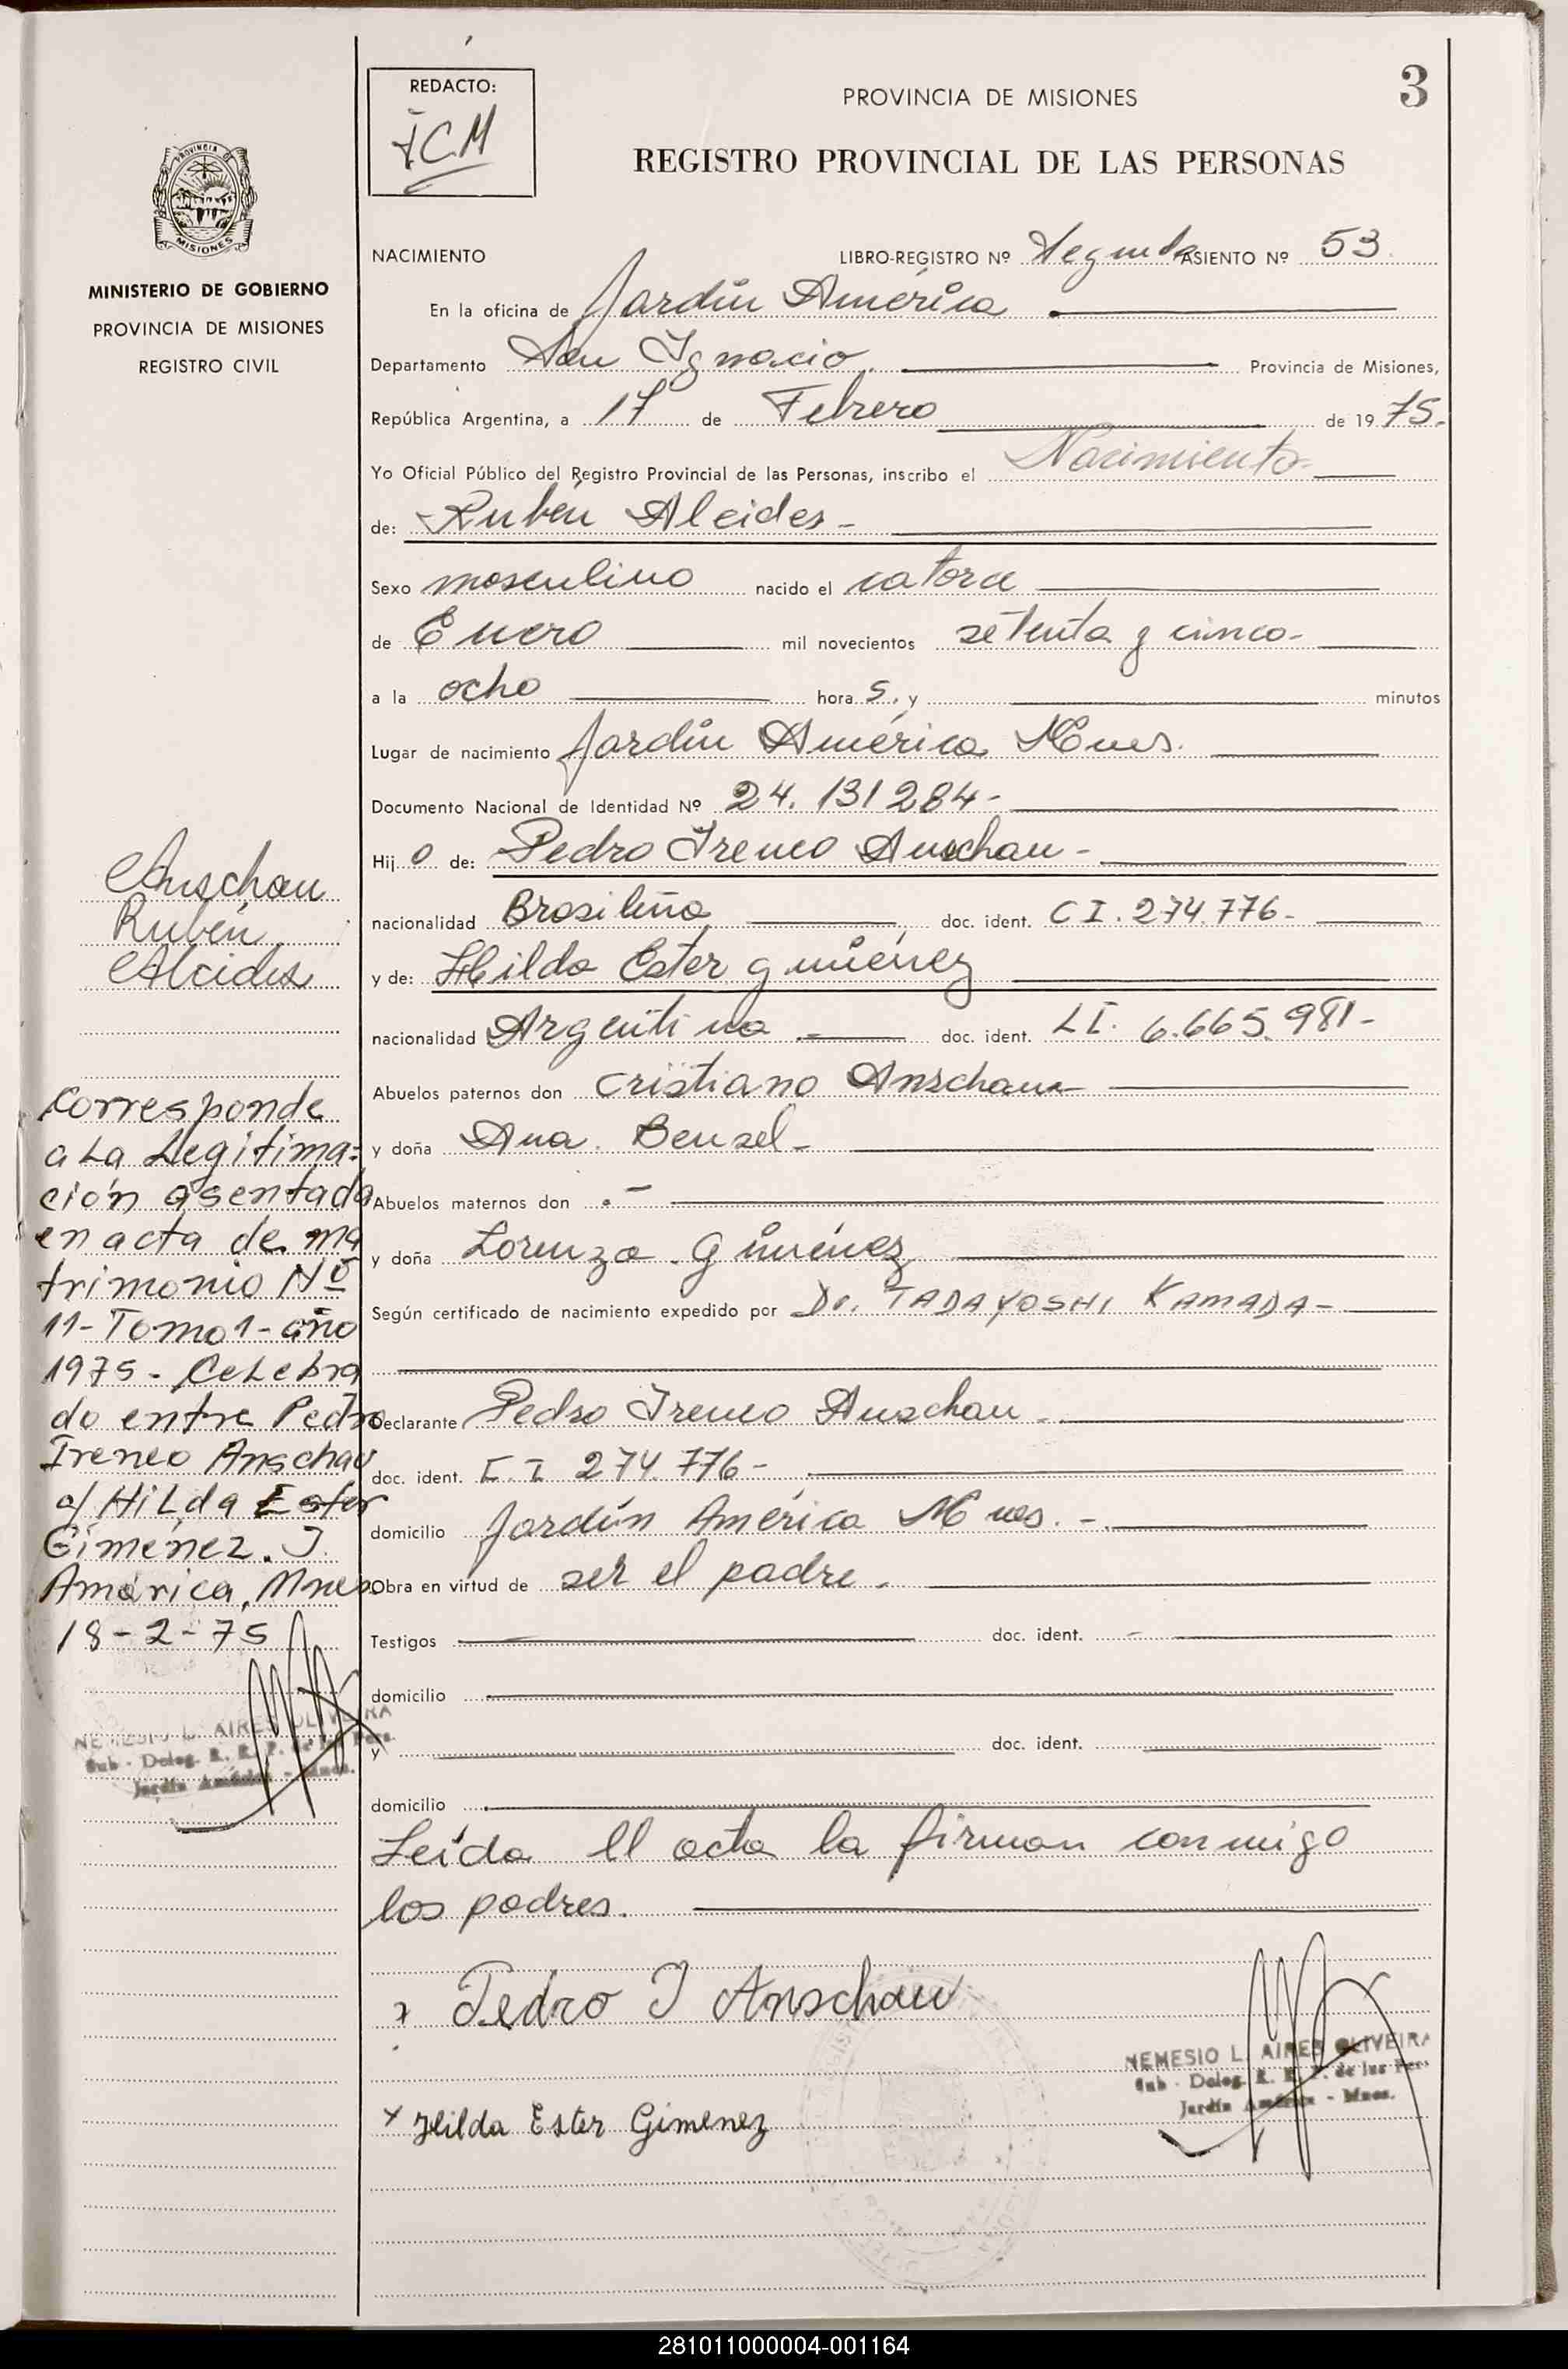 REDACTO:
JCM
PROVINCIA DE MISIONES
3
REGISTRO PROVINCIAL DE LAS PERSONAS
PROVINCIA DE
MISIONES
MINISTERIO DE GOBIERNO
PROVINCIA DE MISIONES
REGISTRO CIVIL
NACIMIENTO LIBRO-REGISTRO Nº Segundo ASIENTO Nº 53.
En la oficina de Jardín América
Departamento San Ignacio. Provincia de Misiones,
República Argentina, a 17 de Febrero de 1975.
Yo Oficial Público del Registro Provincial de las Personas, inscribo el Nacimiento
de: Rubén Alcides -
Sexo masculino nacido el catorce
de Enero mil novecientos setenta y cinco-
a la ocho hora s. y minutos
Lugar de nacimiento Jardín América Mnes.
Documento Nacional de Identidad Nº 24.131284-
Hij o de: Pedro Ireneo Anschau -
nacionalidad Brasileña, doc. ident. C I. 274.776-
y de: Hilda Ester Giménez
nacionalidad Argentina doc. ident. L I. 6.665.981-
Abuelos paternos don Cristiano Anschau
y doña Ana. Bensel-
Abuelos maternos don . -
y doña Lorenza. Giménez
Según certificado de nacimiento expedido por Dr. TADAYOSHI KAMADA-
Declarante Pedro Ireneo Anschau.
doc. ident. C. I 274.776-
domicilio Jardín América Mnes. -.
Obra en virtud de ser el padre.
Testigos doc. ident.
domicilio
y doc. ident.
domicilio
Leída el acta la firman conmigo
los padres.
x Pedro I Anschau
x Hilda Ester Gimenez
NEMESIO L. AIRES OLIVEIRA
Sub - Deleg. R. R. P. de las Pers.
Jardín América - Mnes.
Anschau
Rubén
Alcides
Corresponde
a La Legitima=
ción asentada
en acta de ma
trimonio Nº
11-Tomo1-año
1975 - Celebra
do entre Pedro
Ireneo Anschau
c/ Hilda Ester
Giménez. J.
América, Mnes.
18-2-75
NEMESIO L. AIRES OLIVEIRA
Sub - Deleg. R. R. P. de las Pers.
Jardín América - Mnes.
281011000004-001164